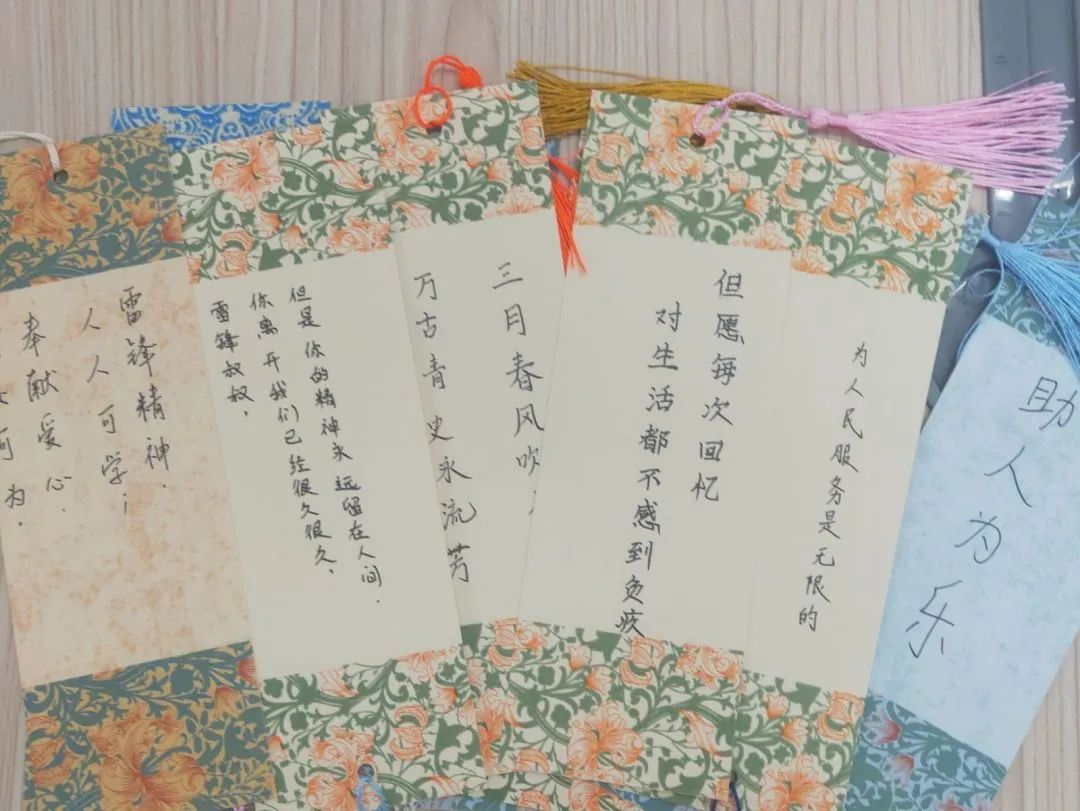 雷锋精神，
人人可学；
奉献爱心．
可为．
雷锋叔叔，
你离开我们已经很久很久，
但是你的精神永远留在人间．
三月春风吹
万古青史永流芳
但愿每次回忆
对生活都不感到负疚
为人民服务是无限的
助人为乐